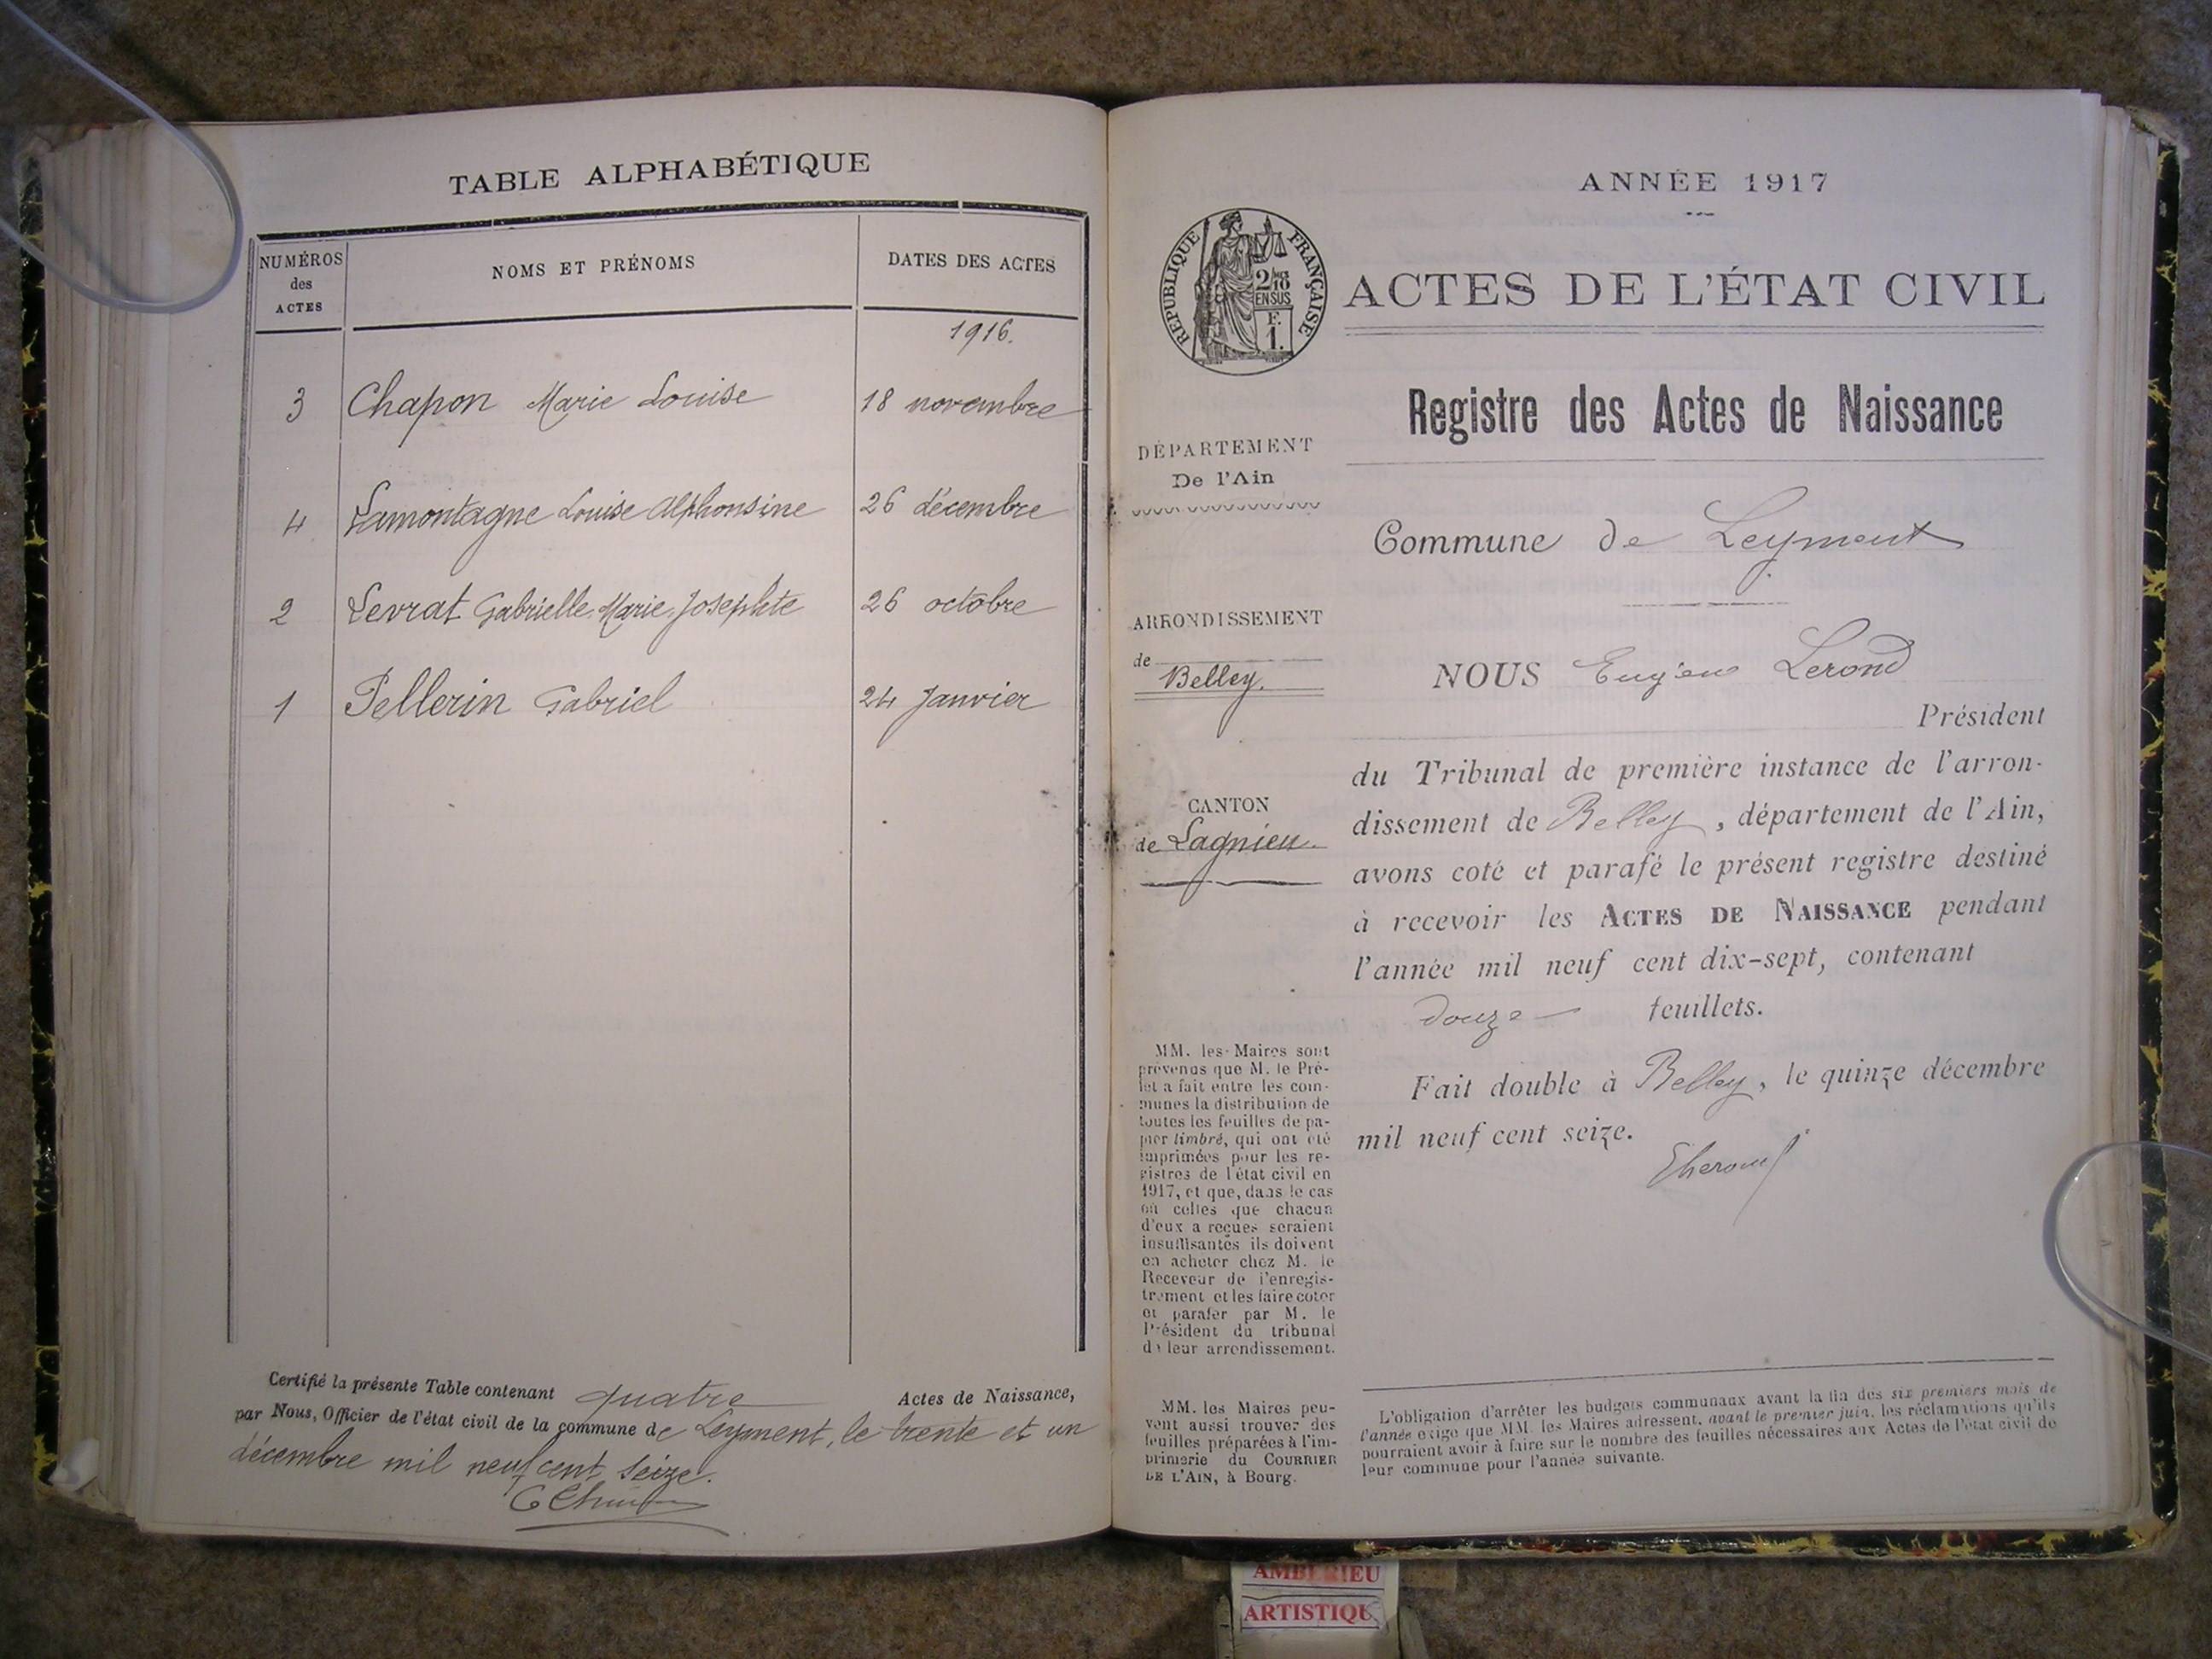 TABLE ALPHABÉTIQUE
NUMÉROS des ACTES
NOMS ET PRÉNOMS
DATES DES ACTES
1916.
3 Chapon Marie Louise 18 novembre
4 Lamontagne Louise Alphonsine 26 décembre
2 Levrat Gabrielle Marie Josephte 26 octobre
1 Pellerin Gabriel 24 Janvier
Certifié la présente Table contenant quatre Actes de Naissance,
par Nous, Officier de l'état civil de la commune de Leyment, le trente et un
décembre mil neuf cent seize.
ANNÉE 1917
RÉPUBLIQUE FRANÇAISE
2/10
EN SUS
F.
1.
ACTES DE L'ÉTAT CIVIL
Registre des Actes de Naissance
DÉPARTEMENT
De l'Ain
Commune de Leyment
ARRONDISSEMENT
de
Belley.
NOUS Eugène Lerond
Président
du Tribunal de première instance de l'arron-
dissement de Belley, département de l'Ain,
avons coté et parafé le présent registre destiné
à recevoir les ACTES DE NAISSANCE pendant
l'année mil neuf cent dix-sept, contenant
douze feuillets.
Fait double à Belley, le quinze décembre
mil neuf cent seize.
CANTON
de Lagnieu.
MM. les Maires sont
prévenus que M. le Pré-
fet a fait entre les com-
munes la distribution de
toutes les feuilles de pa-
pier timbré, qui ont été
imprimées pour les re-
gistres de l'état civil en
1917, et que, dans le cas
où celles que chacun
d'eux a reçues seraient
insuffisantes ils doivent
en acheter chez M. le
Receveur de l'enregis-
trement et les faire coter
et parafer par M. le
Président du tribunal
de leur arrondissement.
MM. les Maires peu-
vent aussi trouver des
feuilles préparées à l'im-
primerie du COURRIER
DE L'AIN, à Bourg.
L'obligation d'arrêter les budgets communaux avant la fin des six premiers mois de
l'année exige que MM. les Maires adressent, avant le premier juin, les réclamations qu'ils
pourraient avoir à faire sur le nombre des feuilles nécessaires aux Actes de l'état civil de
leur commune pour l'année suivante.
AMBERIEU
ARTISTIQU